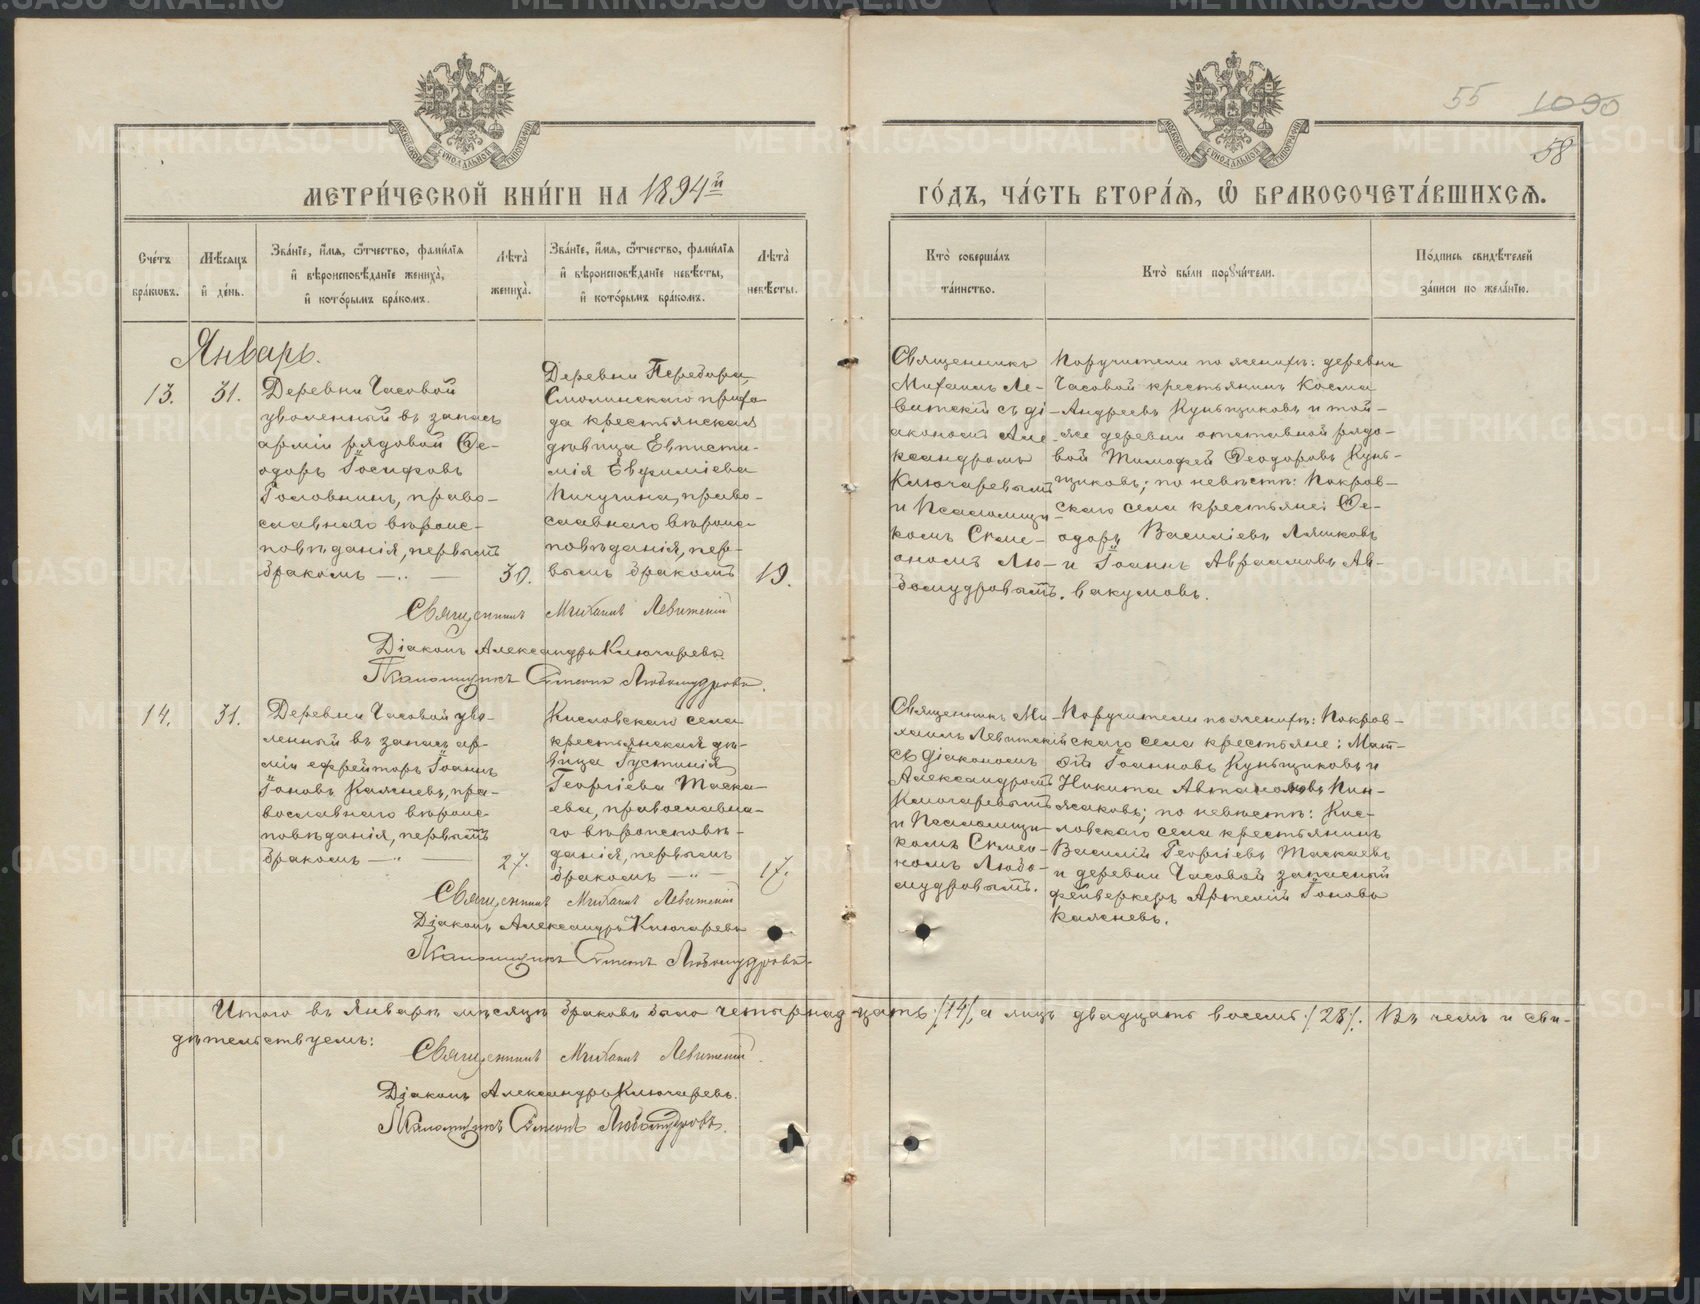 55 1090
58
МЕТРИ́ЧЕСКОЙ КНИ́ГИ НА 1894й
ГО́ДЪ, ЧА́СТЬ ВТОРА́Я, Ѽ БРАКОСОЧЕТА́ВШИХСЯ.
Сче́тъ бра́кѡвъ.
Мѣ́сяцъ и҆ де́нь.
Зва́нїе, и҆́мя, ѻ҆́тчество, фами́лїя
и҆ вѣроисповѣ́данїе жениха̀,
и҆ кото́рымъ бра́комъ.
Лѣта̀ жениха̀.
Зва́нїе, и҆́мя, ѻ҆́тчество, фами́лїя
и҆ вѣроисповѣ́данїе невѣ́сты,
и҆ кото́рымъ бра́комъ.
Лѣта̀ невѣ́сты.
Кто̀ соверша́лъ
та́инство.
Кто̀ бы́ли порꙋчи́тели.
По́дпись свидѣ́телей
за́писи по жела́нїю.
Январь.
13.
31.
Деревни Часовой
уволенный въ запасъ
арміи рядовой Ѳе-
одоръ Іосифовъ
Головнинъ, право-
славнаго вѣроис-
повѣданія, первымъ
бракомъ
30.
Деревни Перебора,
Смолинскаго прихо
да крестьянская
дѣвица Евписти-
мія Евфиміева
Пичугина, право-
славнаго вѣроис-
повѣданія, пер-
вымъ бракомъ
19.
Священникъ
Михаилъ Ле-
витскій съ ді-
акономъ Але-
ксандромъ
Ключаревымъ
и Псаломщи-
комъ Симе-
ономъ Лю-
бомудровымъ.
Поручители по женихѣ: деревни
Часовой крестьянинъ Косма
Андреевъ Куньщиковъ и той-
же деревни отставной рядо-
вой Тимофей Ѳеодоровъ Кунь-
щиковъ; по невѣстѣ: Покров-
скаго села крестьяне: Ѳе-
одоръ Василіевъ Ляшковъ
и Іоаннъ Авраамовъ Ав-
вакумовъ.
Священникъ Михаилъ Левитскій
Діаконъ Александръ Ключаревъ.
Псаломщикъ Симеонъ Любомудровъ.
14.
31.
Деревни Часовой уво-
ленный въ запасъ ар-
міи ефрейторъ Іоаннъ
Іоновъ Каляневъ, пра-
вославнаго вѣроис-
повѣданія, первымъ
бракомъ
27.
Кисловскаго села
крестьянская дѣ-
вица Іустинія
Георгіева Таска-
ева, православна-
го вѣроисповѣ-
данія, первымъ
бракомъ
17.
Священникъ Ми-
хаилъ Левитскій
съ діакономъ
Александромъ
Ключаревымъ
и Псаломщи-
комъ Симео-
номъ Любо-
мудровымъ.
Поручители по женихѣ: Покров-
скаго села крестьяне: Мат-
ѳій Іоанновъ Куньщиковъ и
Никита Автономовъ Пин-
жаковъ; по невѣстѣ: Кис-
ловскаго села крестьянинъ
Василій Георгіевъ Таскаевъ
и деревни Часовой запасный
фейверкеръ Артемій Іоновъ
Каляневъ.
Священникъ Михаилъ Левитскій
Діаконъ Александръ Ключаревъ
Псаломщикъ Симеонъ Любомудровъ.
Итого въ Январѣ мѣсяцѣ браковъ было четырнадцать /14/, а лицъ двадцать восемь /28/. Въ чемъ и сви-
дѣтельствуемъ:
Священникъ Михаилъ Левитскій.
Діаконъ Александръ Ключаревъ.
Псаломщикъ Симеонъ Любомудровъ.
METRIKI.GASO-URAL.RU